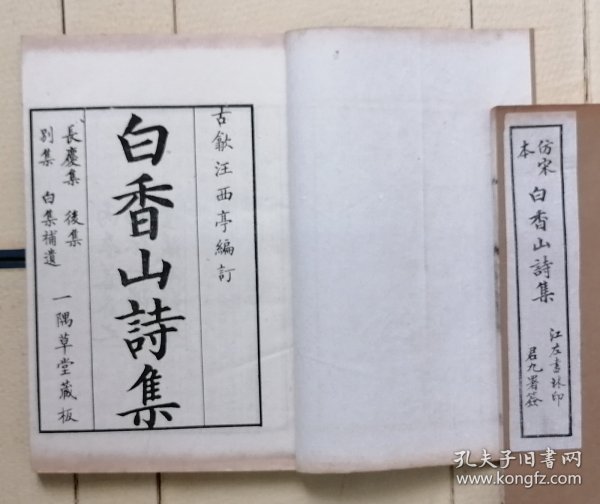 古歙汪西亭編訂
白香山詩集
長慶集 後集
別集 白集補遺
一隅草堂藏板
仿宋本
白香山詩集
江左書林印
君九署簽
孔夫子旧书网
www.kongfz.com